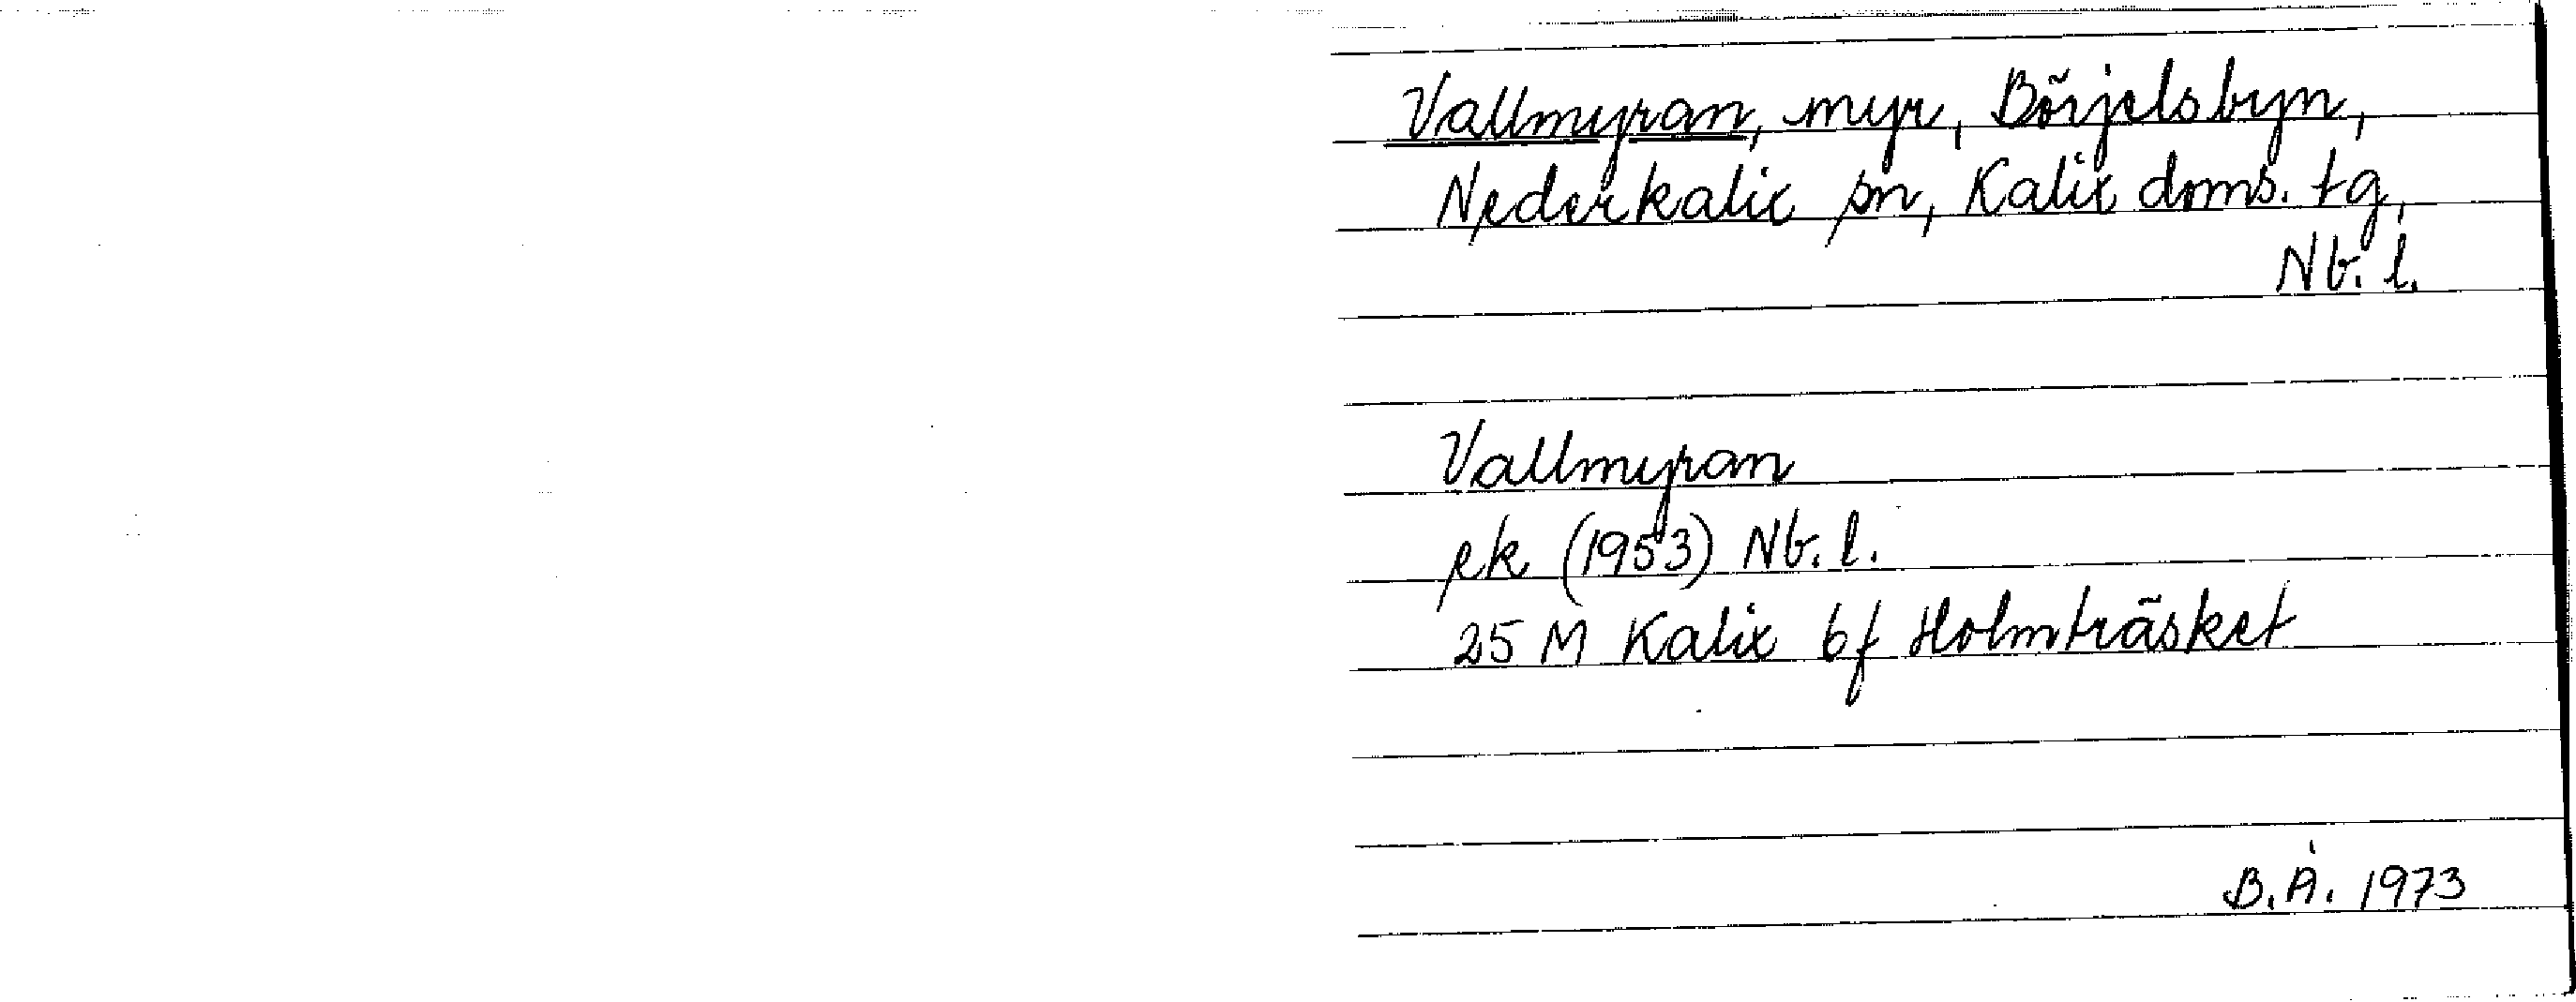 Vallmyran, myr, Börjelsbyn,
Nederkalix sn, Kalix doms. tg,
Nb. l.
Vallmyran
ek (1953) Nb. l.
25 M Kalix 6f Holmträsket
B.Å. 1973